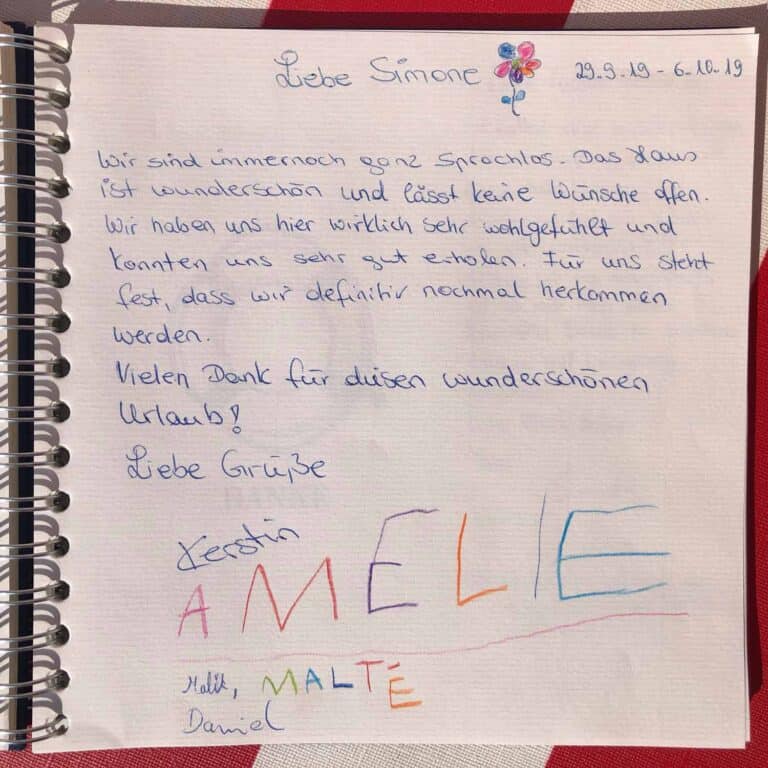 Liebe Simone 29.9.19 - 6.10.19
Wir sind immernoch ganz Sprachlos. Das Haus
ist wunderschön und lässt keine Wünsche offen.
Wir haben uns hier wirklich sehr wohlgefühlt und
konnten uns sehr gut erholen. Für uns steht
fest, dass wir definitiv nochmal herkommen
werden.
Vielen Dank für diesen wunderschönen
Urlaub!
Liebe Grüße
Kerstin
AMELIE
MALTE
Daniel